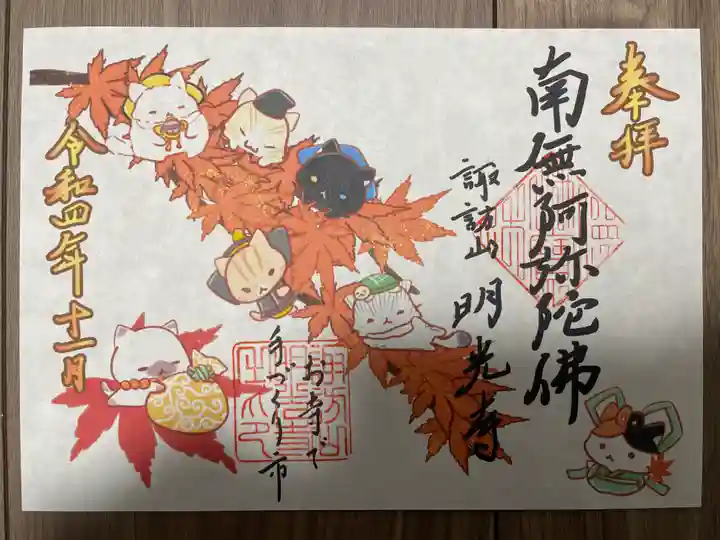 奉拝
南無阿弥陀佛
諏訪山 明光寺
お寺で
手づくり市
令和四年十一月